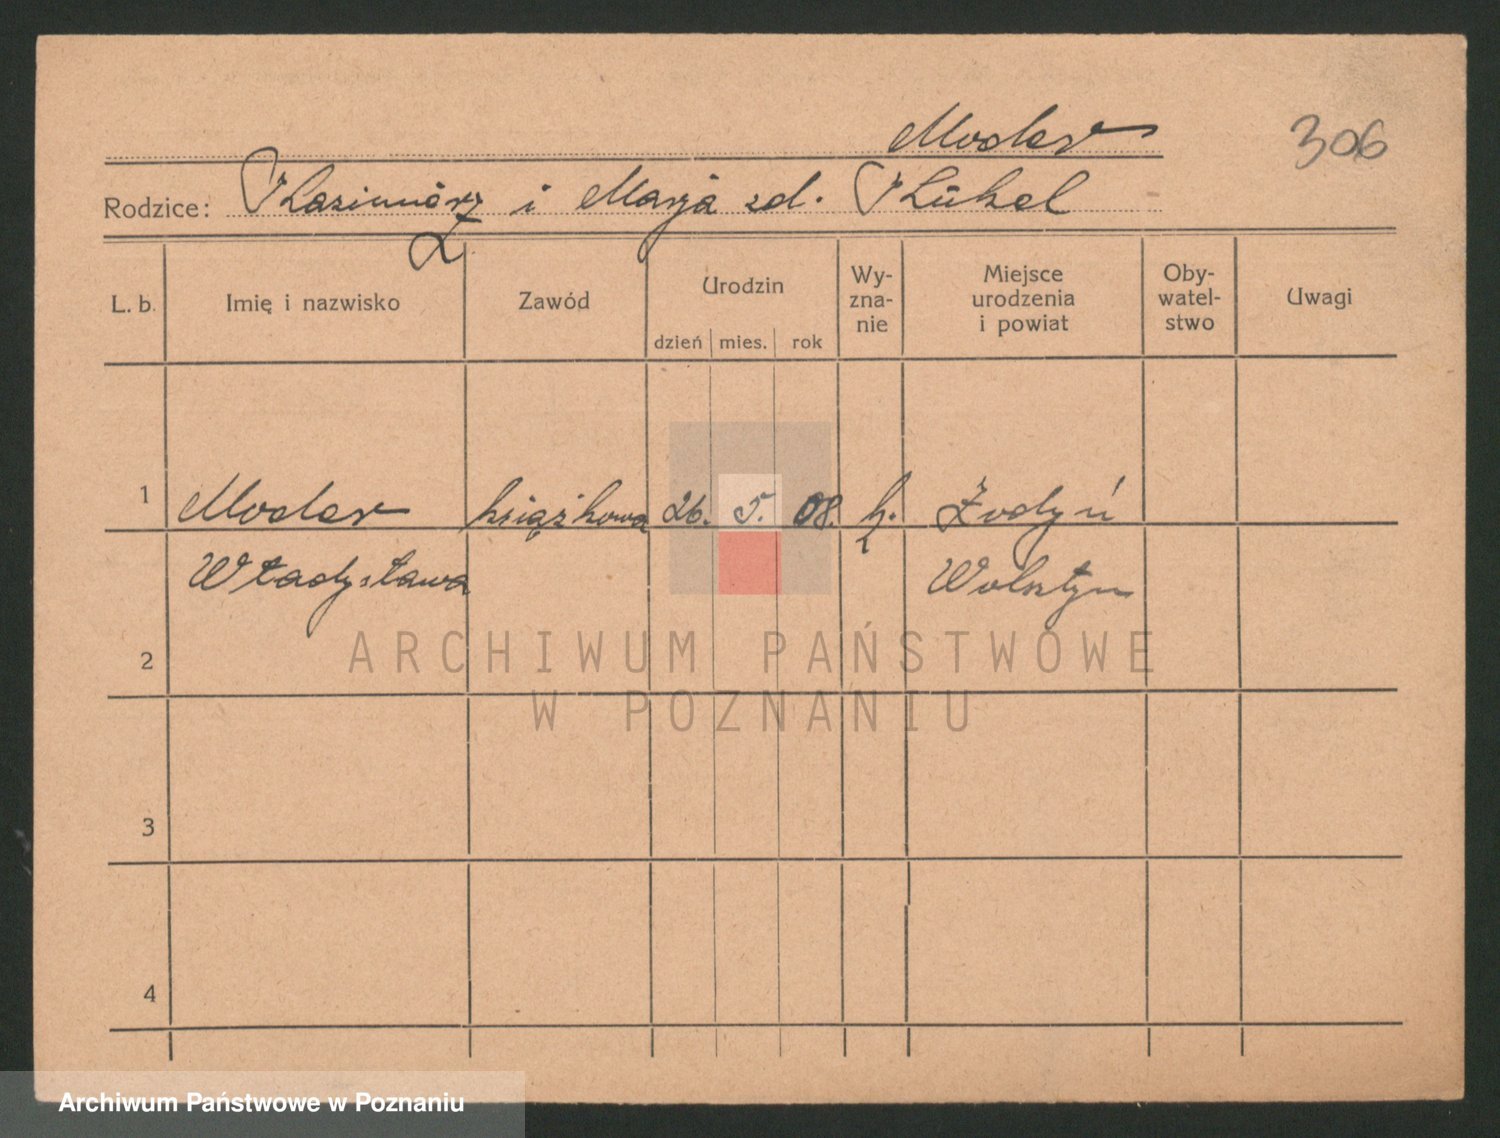 Moder
306
Rodzice: Kazimiérz i Marja zd. Kükel
L. b. Imię i nazwisko Zawód Urodzin dzień mies. rok Wy-
zna-
nie Miejsce
urodzenia
i powiat Oby-
watel-
stwo Uwagi
1 Moder książkowa 26. 5. 08. k. Żodyń
Władysława Wolsztyn
2
ARCHIWUM PAŃSTWOWE
W POZNANIU
3
4
Archiwum Państwowe w Poznaniu